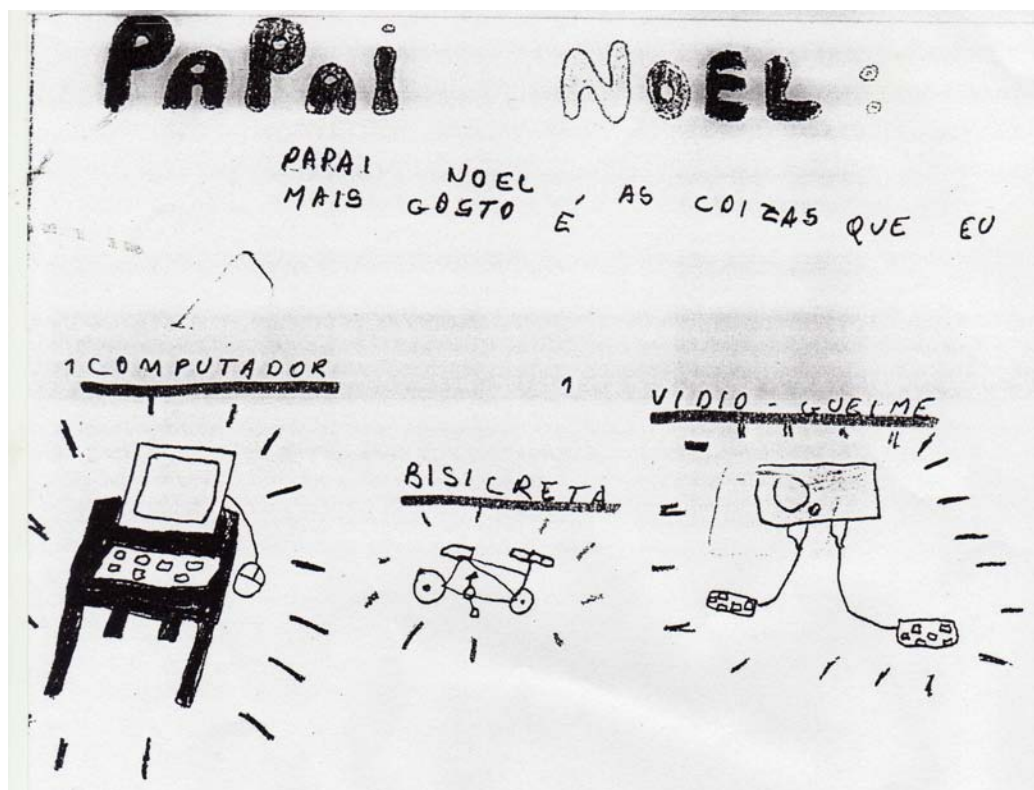 PAPAI NOEL:
PAPAI NOEL AS COIZAS QUE EU
MAIS GOSTO É
1 COMPUTADOR
1 VIDIO-GUEIME
BISICRETA